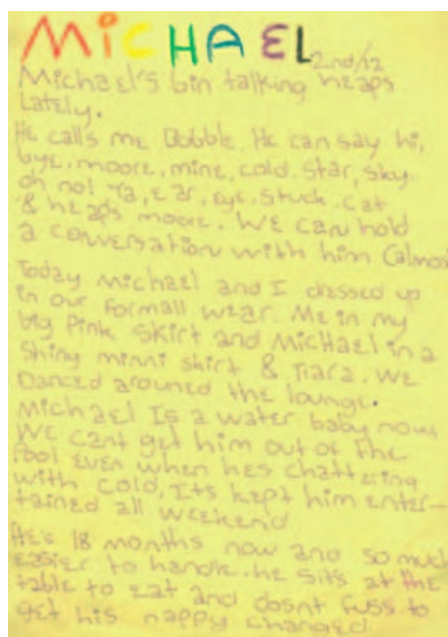 MICHAEL
2nd/12
Michael's bin talking heaps
Lately.
He calls me Bobble. He can say hi,
bye, moore, mine, cold, star, sky,
oh no! Ta, ear, eye, stuck, cat
& heaps moore. We can hold
a conversation with him (almost
Today Michael and I dressed up
in our formall wear. Me in my
big Pink skirt and Michael in a
Shiny minni skirt & Tiara. We
Danced around the lounge.
Michael Is a water baby now
We cant get him out of the
Pool even when hes chattering
with cold, Its kept him enter-
tained all weekend
He's 18 months now and so much
easier to handle. he sits at the
table to eat and dosnt fuss to
get his nappy changed